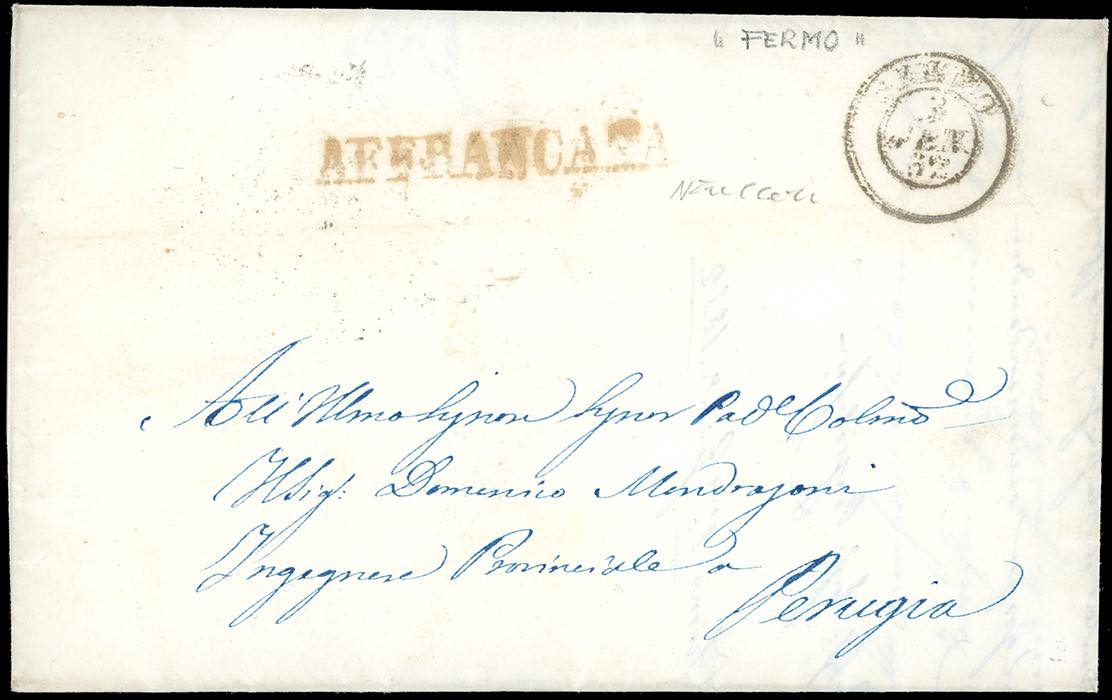 " FERMO "
FERMO
3
GEN
52
AFFRANCATA
All' Illmo Signore Signor Pad e Colmo
Il Sig: Domenico Mondragoni
Ingegnere Provinciale a
Perugia